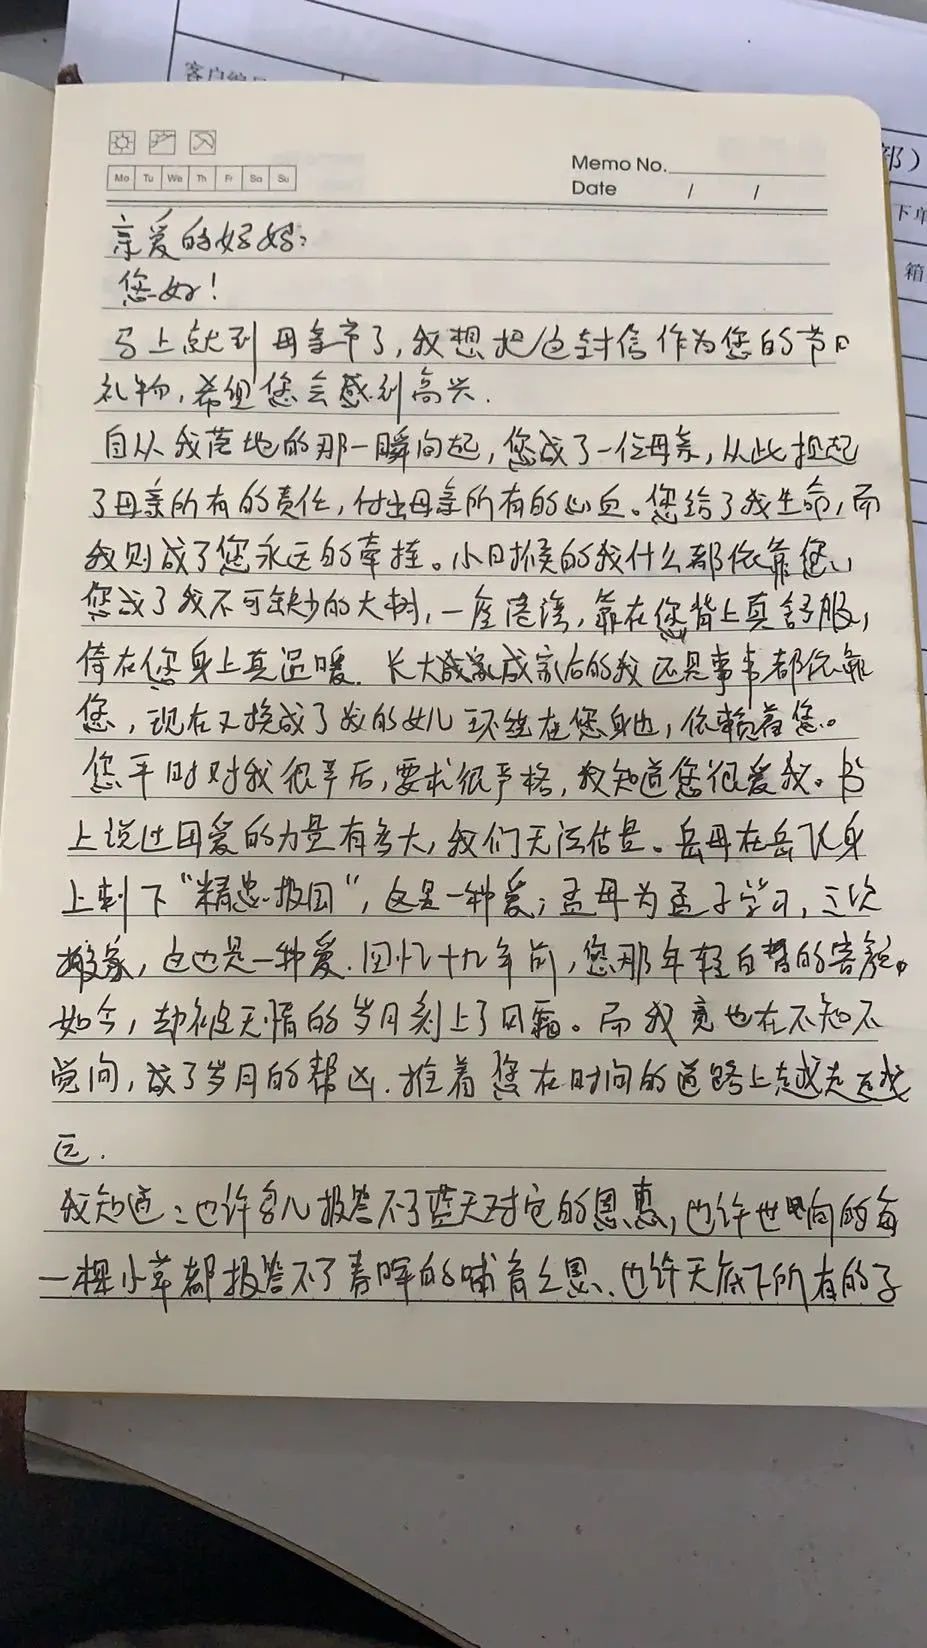 客户编号
部）
下单
箱
Memo No.
Mo Tu We Th Fr Sa Su
Date / /
亲爱的妈妈：
您好！
马上就到母亲节了，我想把这封信作为您的节日
礼物，希望您会感到高兴.
自从我落地的那一瞬间起，您成了一位母亲，从此担起
了母亲所有的责任，付出母亲所有的心血。您给了我生命，而
我则成了您永远的牵挂。小时候的我什么都依靠您，
您成了我不可缺少的大树，一座港湾，靠在您背上真舒服，
倚在您身上真温暖. 长大成家后的我还是事事都依靠
您，现在又换成了我的女儿环绕在您身边，依赖着您。
您平时对我很严厉，要求很严格，我知道您很爱我。书
上说过母爱的力量有多大，我们无法估量。岳母在岳飞身
上刺下“精忠报国”，这是一种爱；孟母为孟子学习，三次
搬家，这也是一种爱.回忆十九年前，您那年轻白皙的容颜，
如今，却被无情的岁月刻上了风霜。而我竟也在不知不
觉间，成了岁月的帮凶.推着您在时间的道路上越走越
远.
我知道：也许鸟儿报答不了蓝天对它的恩惠，也许世间的每
一棵小草都报答不了春晖的哺育之恩、也许天底下所有的子